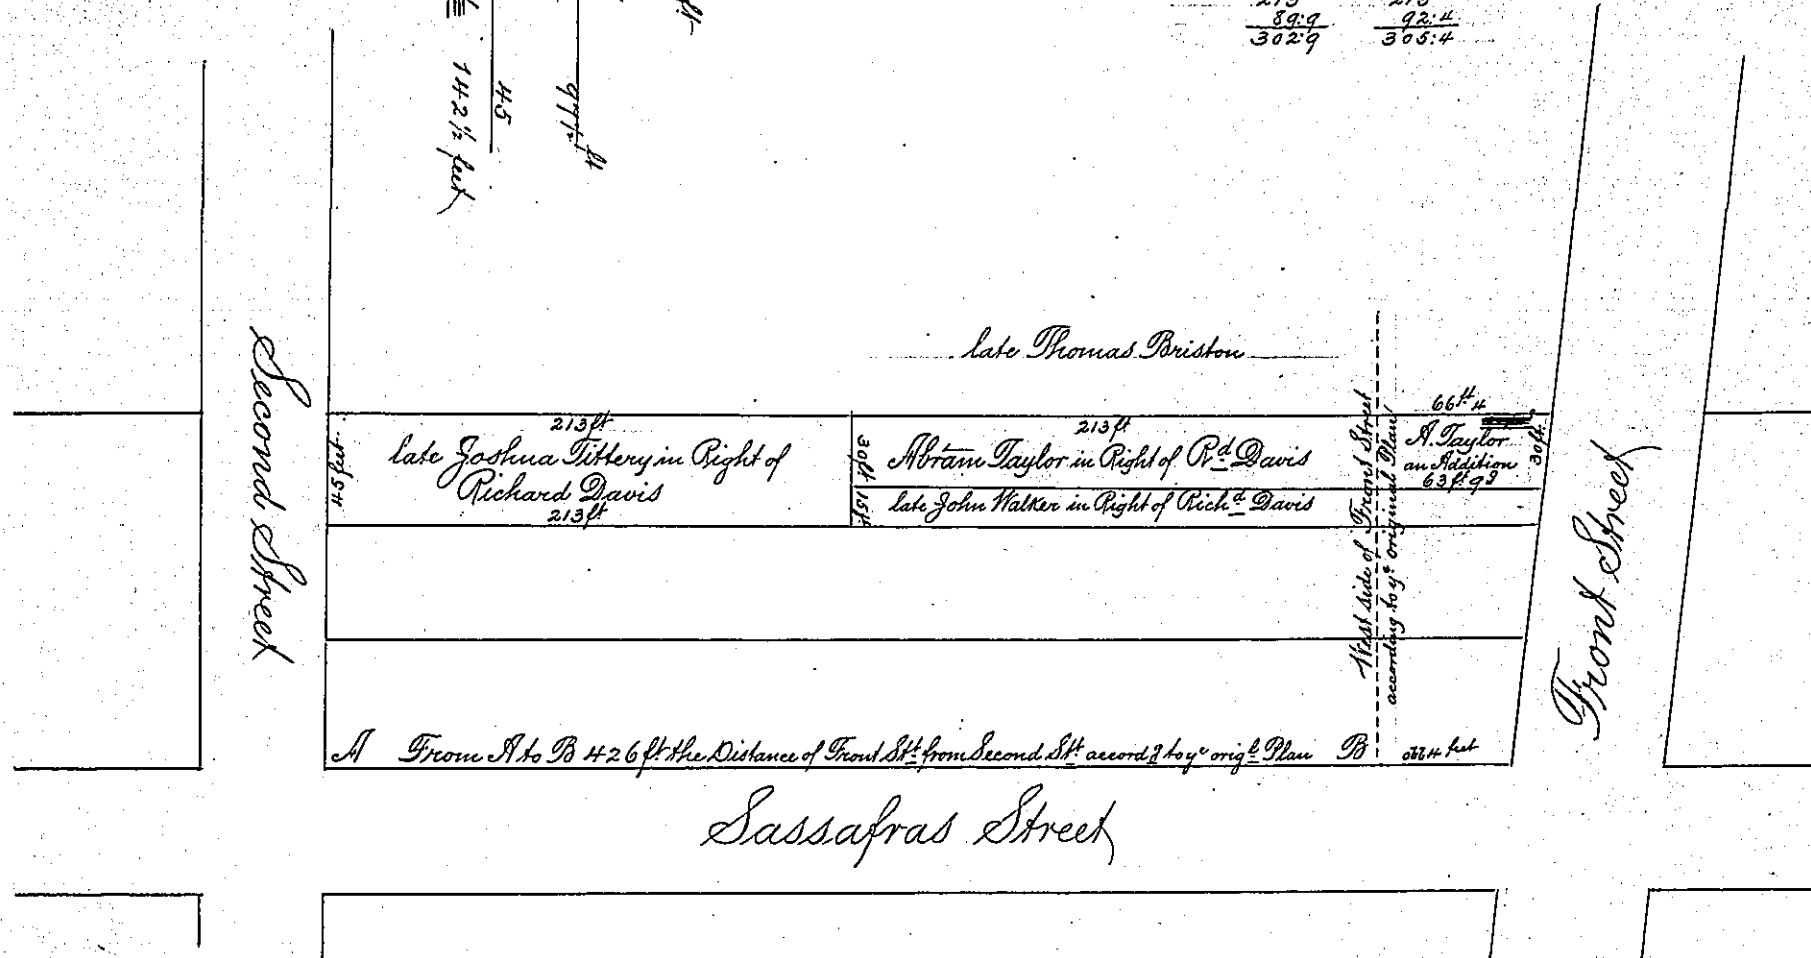 89:9
302:9
92:4
305:4
ft
45
142½ feet
97½ ft
late Thomas Briston
Second Street
45 feet
213 ft
late Joshua Tittery in Right of
Richard Davis
213 ft
30 ft
15 ft
213 ft
Abram Taylor in Right of Rd Davis
late John Walker in Right of Richd Davis
West side of Front Street
according to ye original Plan
66 ft 4
A. Taylor
an Addition
63 ft 9
30 ft
Front Street
A From A to B 426 ft the Distance of Front St from Second St accordg to ye origl Plan B
feet
Sassafras Street